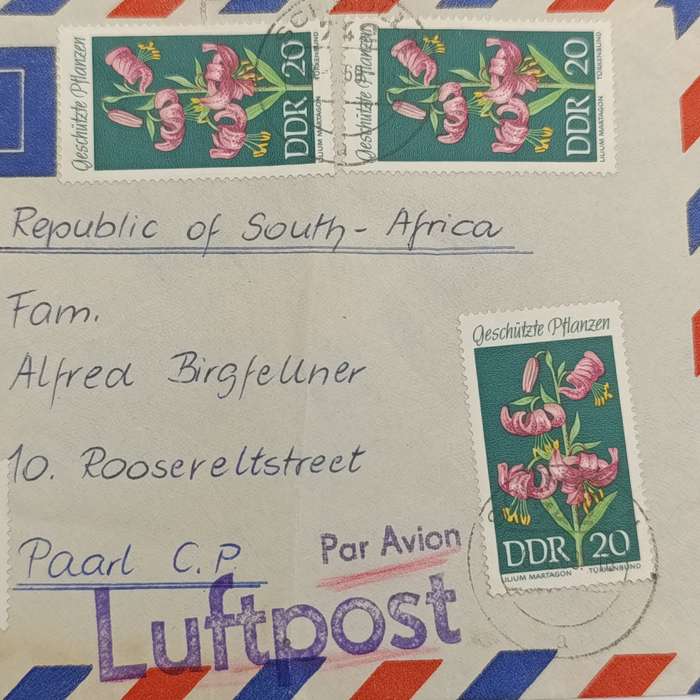 Geschützte Pflanzen
DDR 20
LILIUM MARTAGON TÜRKENBUND
Geschützte Pflanzen
DDR 20
LILIUM MARTAGON TÜRKENBUND
Republic of South-Africa
Fam.
Alfred Birgfellner
10. Roosereltstreet
Paarl C.P.
Geschützte Pflanzen
DDR 20
LILIUM MARTAGON TÜRKENBUND
Par Avion
Luftpost